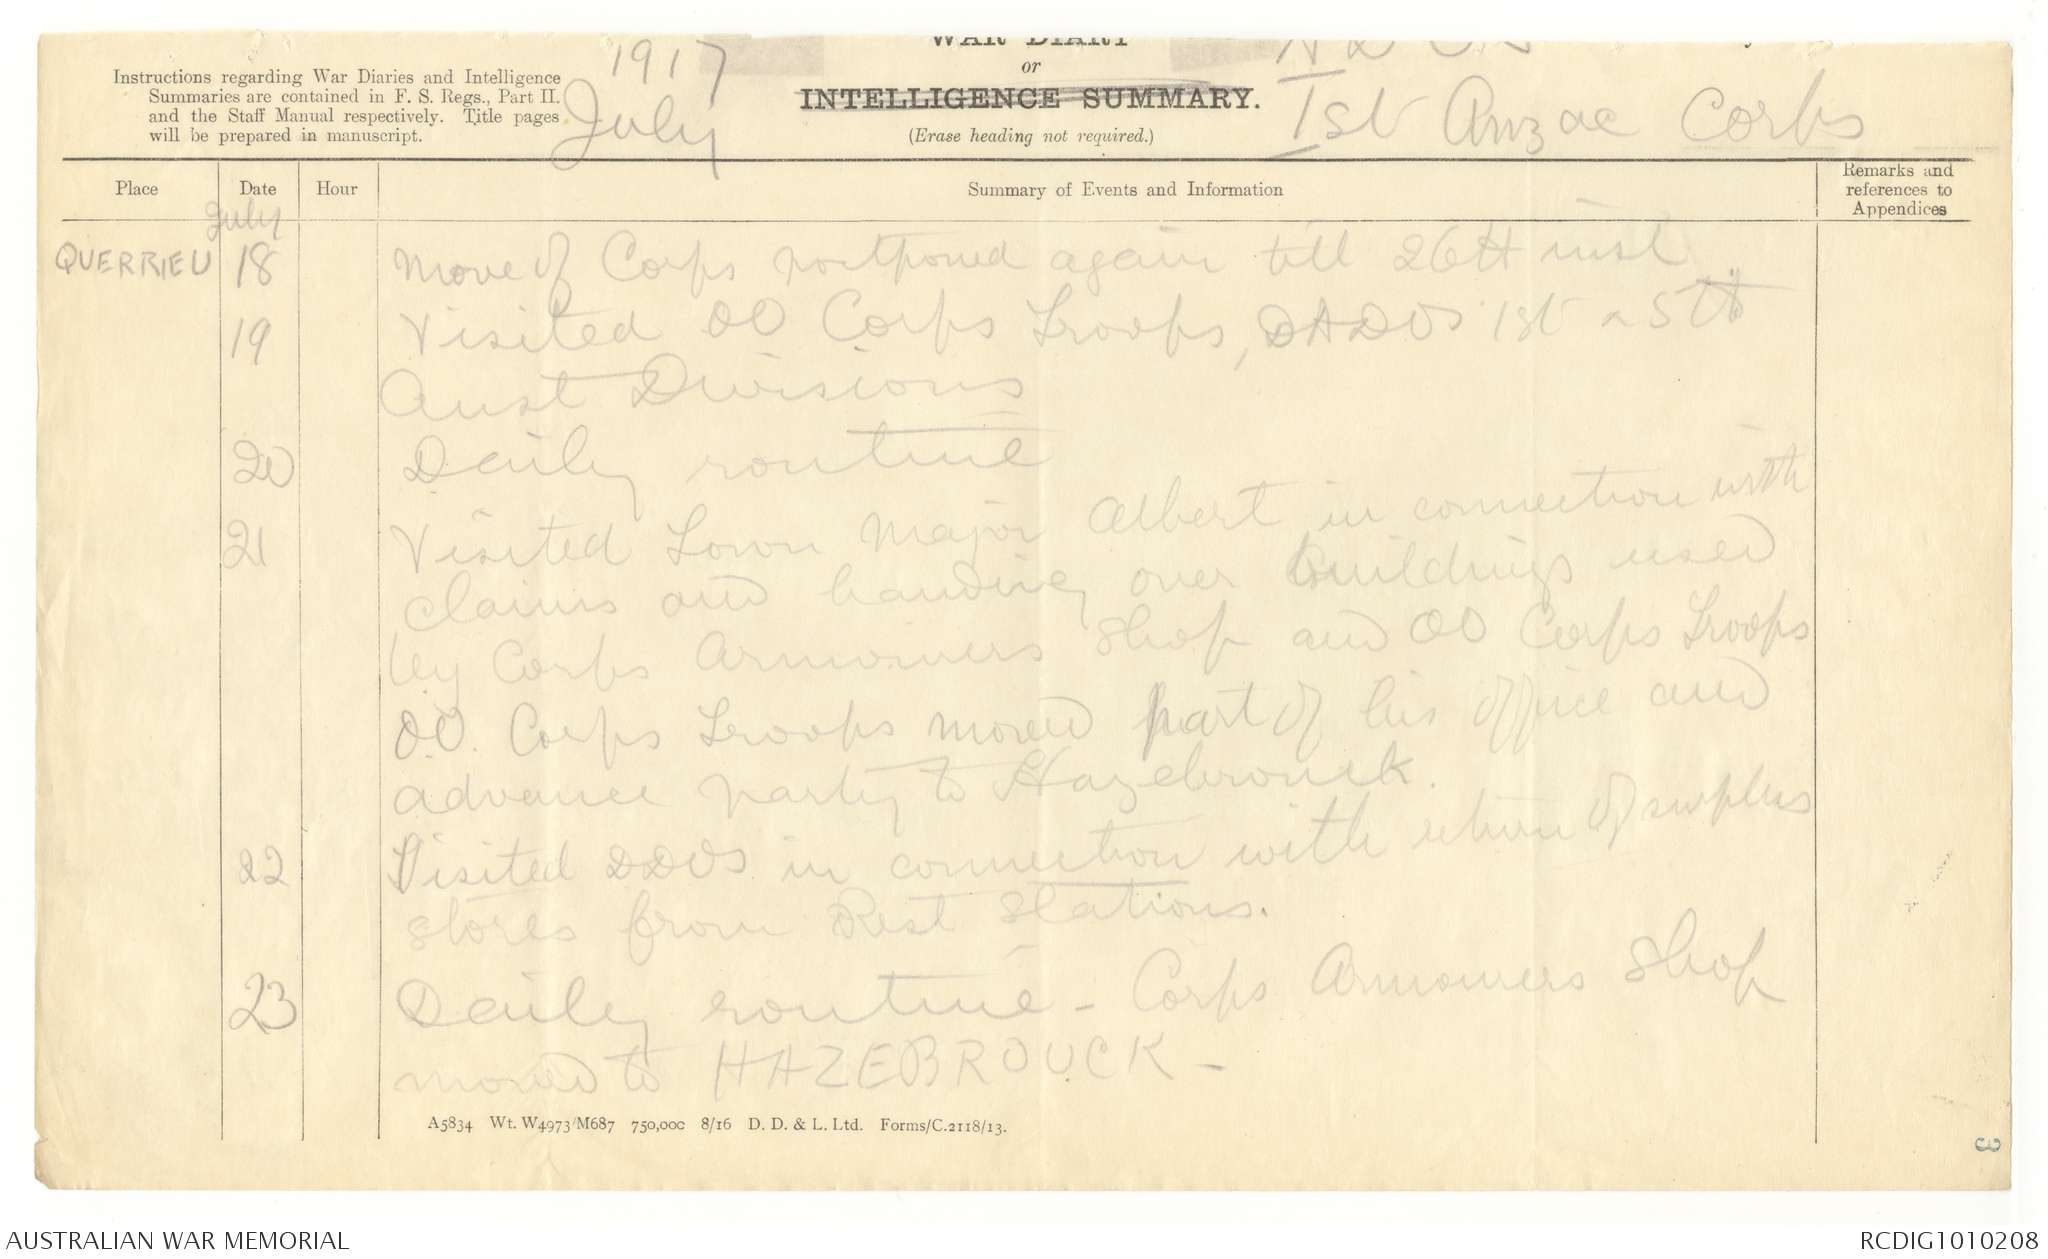 1917
July
WAR DIARY
or
INTELLIGENCE SUMMARY.
(Erase heading not required.)
1st Anzac Corps
Instructions regarding War Diaries and Intelligence
Summaries are contained in F. S. Regs., Part II.
and the Staff Manual respectively. Title pages
will be prepared in manuscript.
Place Date Hour Summary of Events and Information Remarks and references to Appendices
July
QUERRIEU 18 Move of Corps postponed again till 26th inst
19 Visited OO Corps Troops, DADOS 1st & 5th
Aust Divisions
20 Daily routine
21 Visited Town Major Albert in connection with
claims and handing over buildings used
by Corps Armourers Shop and OO Corps Troops
OO. Corps Troops moved part of his office and
advance party to Hazebrouck.
22 Visited DDOS in connection with return of surplus
stores from Rest Stations.
23 Daily routine - Corps Armourers Shop
moved to HAZEBROUCK -
A5834 Wt. W4973/M687 750,000 8/16 D. D. & L. Ltd. Forms/C.2118/13.
3
AUSTRALIAN WAR MEMORIAL
RCDIG1010208